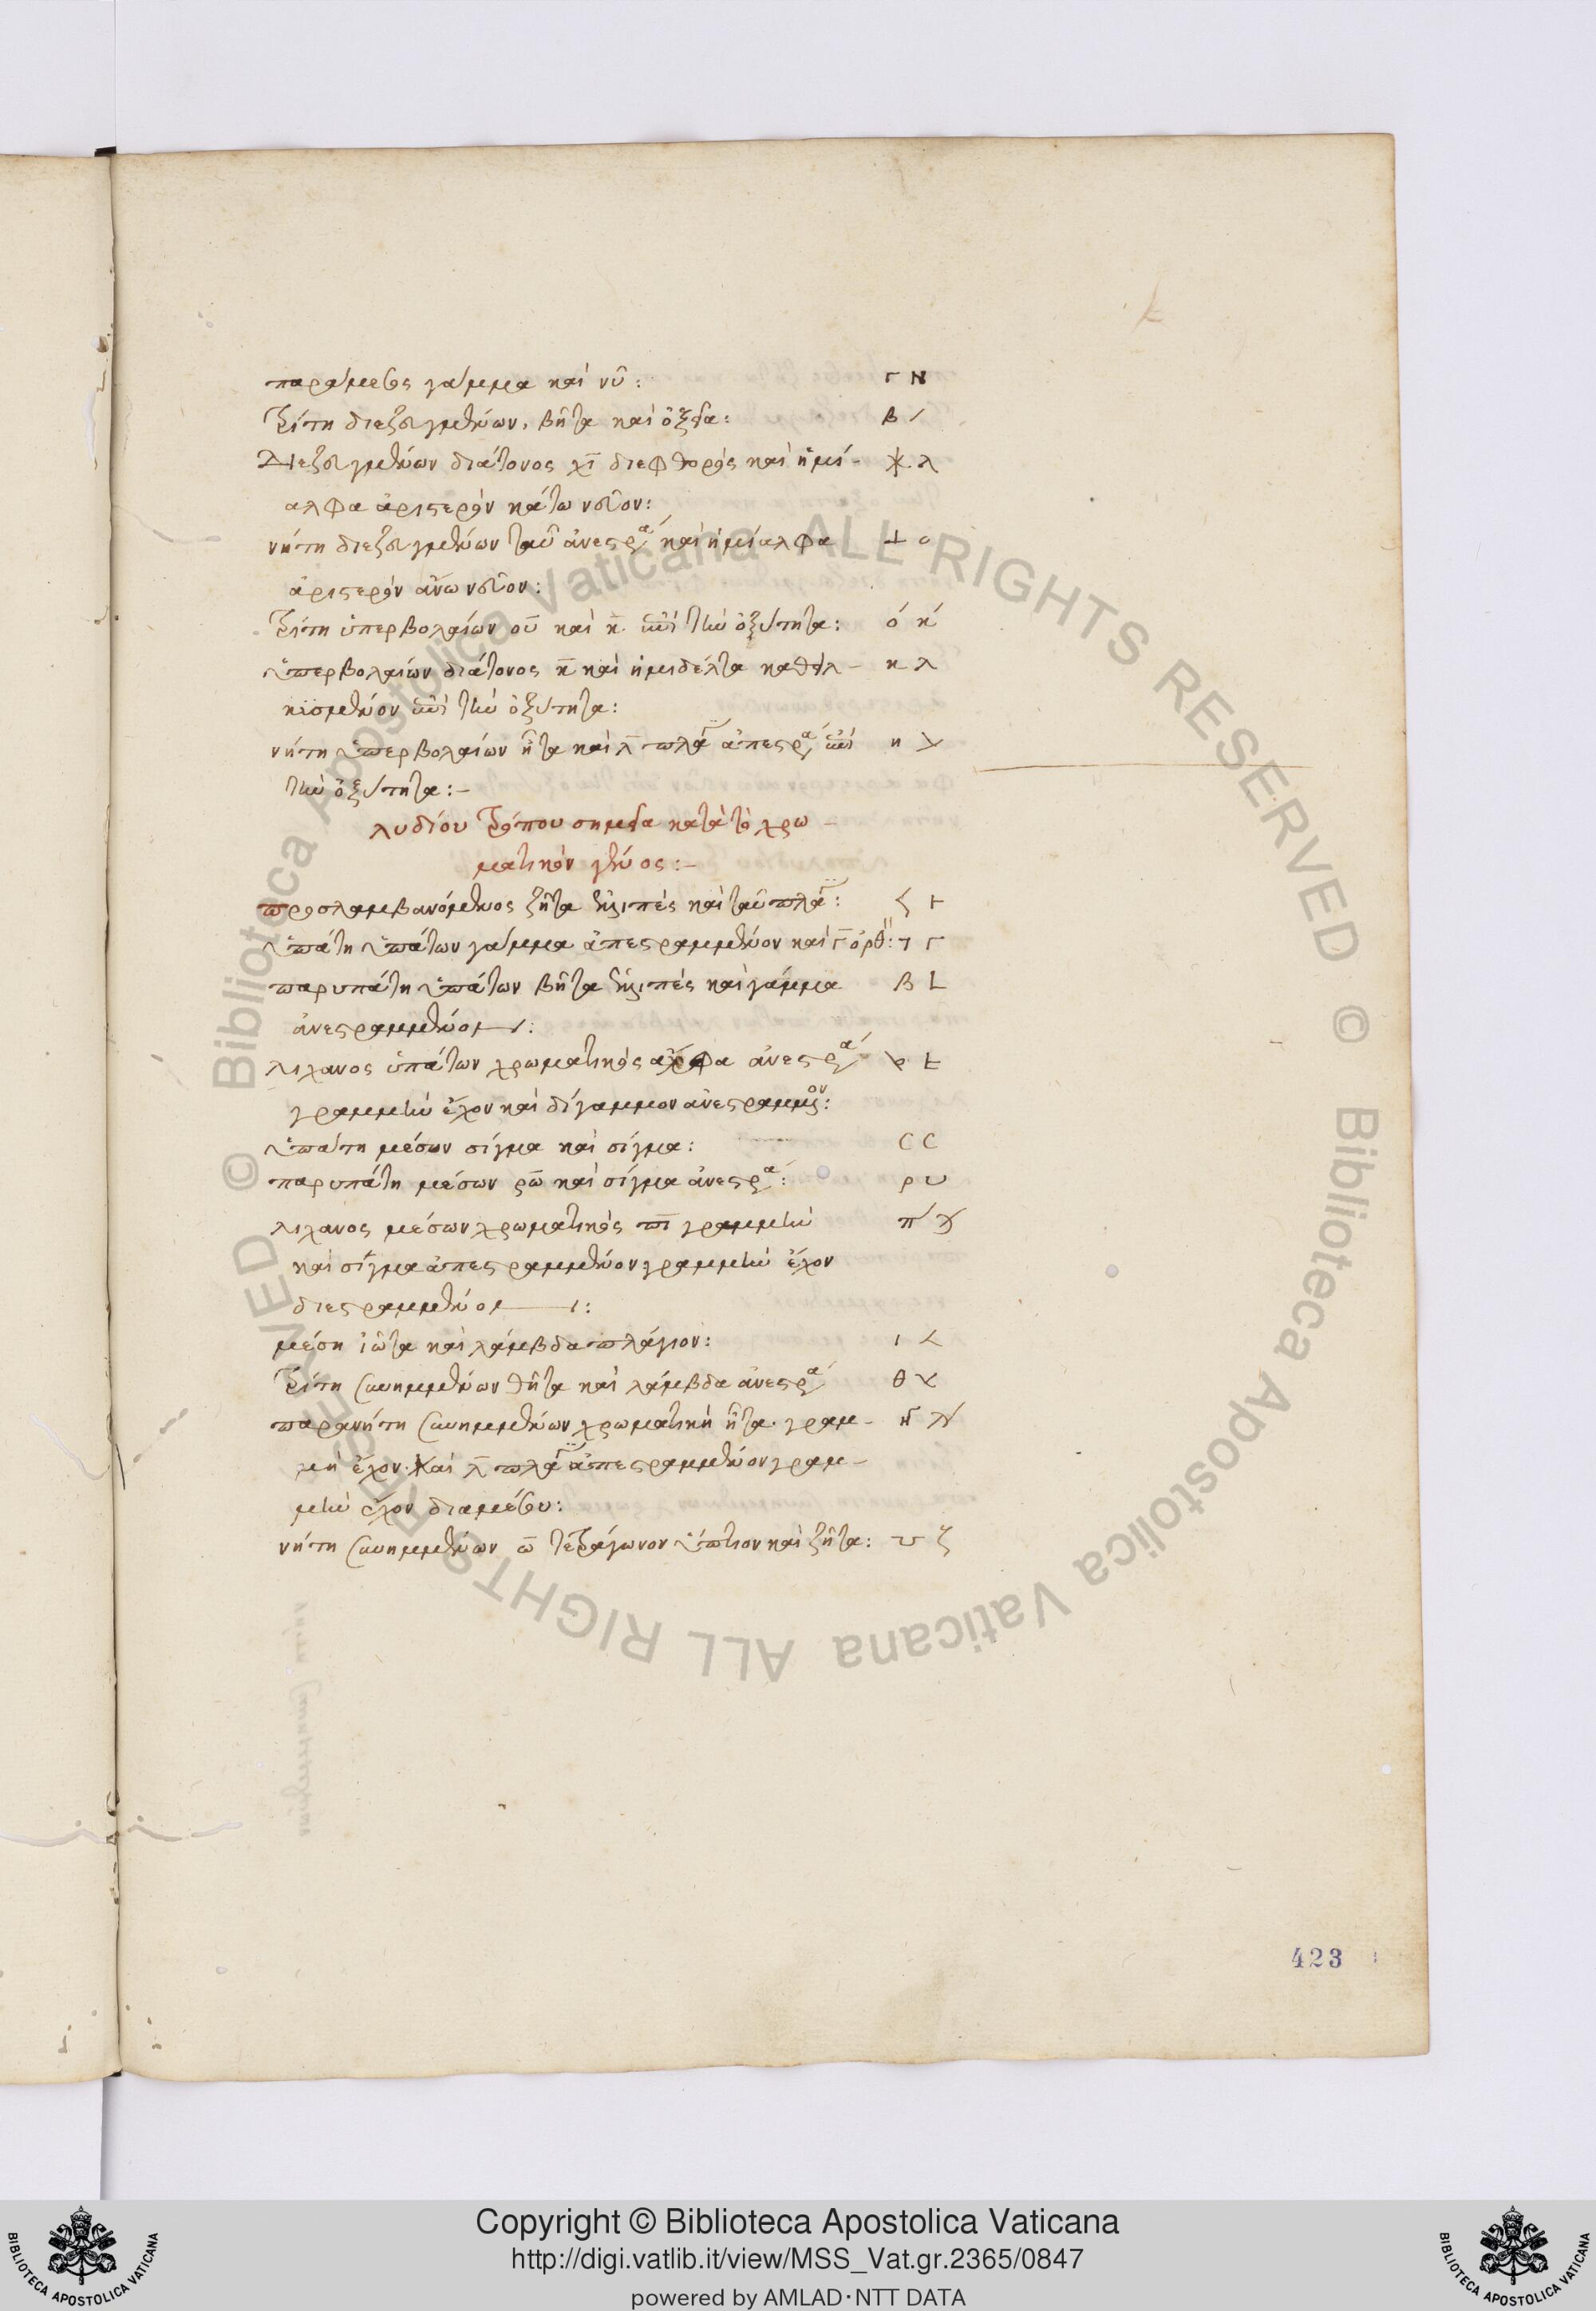 παράμεσος γάμμα καὶ νῦ: Γ Ν
Τρίτη διεζευγμένων, βῆτα καὶ ὀξεῖα: β /
Διεζευγμένων διάτονος χῖ διεφθορὸς καὶ ἡμί- ⁎ λ
αλφα ἀριστερὸν κάτω νεῦον:
νήτη διεζευγμένων ταῦ ἀνεστρα καὶ ἡμίαλφα ⊥
ἀριστερὸν ἄνω νεῦον:
Τρίτη ὑπερβολαίων οὖ καὶ κ̄ ἐπὶ τὴν ὀξύτητα: ό κ́
ὑπερβολαίων διάτονος κ̄ καὶ ἡμιδέλτα καθειλ- κ λ
κϊσμένον ἐπὶ τὴν ὀξύτητα:
νήτη ὑπερβολαίων ἦτα καὶ λ̄ πλά ἀπεστρα ἐπὶ η >
τὴν ὀξύτητα:-
λυδίου τρόπου σημεῖα κατὰ τὸ χρω-
ματικὸν γένος:-
προσλαμβανόμενος ζῆτα ἐλλιπὲς καὶ ταῦ πλά: ⊢
ὑπάτη ὑπάτων γάμμα ἀπεστραμμένον καὶ Γ ὀρθ: ㄱ Γ
παρυπάτη ὑπάτων βῆτα ἐλλιπὲς καὶ γάμμα β L
ἀνεστραμμένον:
λιχανος ὑπάτων χρωματικὸς ἄλφα ἀνεστρα
γραμμὴν ἔχον καὶ δίγαμμον ἀνεστραμμον:
ὑπάτη μέσων σίγμα καὶ σίγμα: C C
παρυπάτη μέσων ρω̄ καὶ σίγμα ἀνεστρα: ρ υ
λιχανος μέσων χρωματικὸς π̄ῖ γραμμὴν π́
καὶ σίγμα ἀπεστραμμένον γραμμὴν ἔχον
διεστραμμένον:
μέση ἰῶτα καὶ λάμβδα πλάγιον: ι <
Τρίτη συνημμένων θῆτα καὶ λάμβδα ἀνεστρα θ
παρανήτη συνημμένων χρωματικὴ ἦτα. γραμ-
μὴ ἔχον. καὶ λ̄ πλά ἀπεστραμμένον γραμ-
μὴν ἔχον διαμέσου:
νήτη συνημμένων ω̄ τετράγωνον ὕπτιον καὶ ζῆτα: ζ
423
Copyright © Biblioteca Apostolica Vaticana
http://digi.vatlib.it/view/MSS_Vat.gr.2365/0847
powered by AMLAD·NTT DATA
BIBLIOTECA APOSTOLICA VATICANA
BIBLIOTECA APOSTOLICA VATICANA
© Biblioteca Apostolica Vaticana ALL RIGHTS RESERVED © Biblioteca Apostolica Vaticana ALL RIGHTS RESERVED